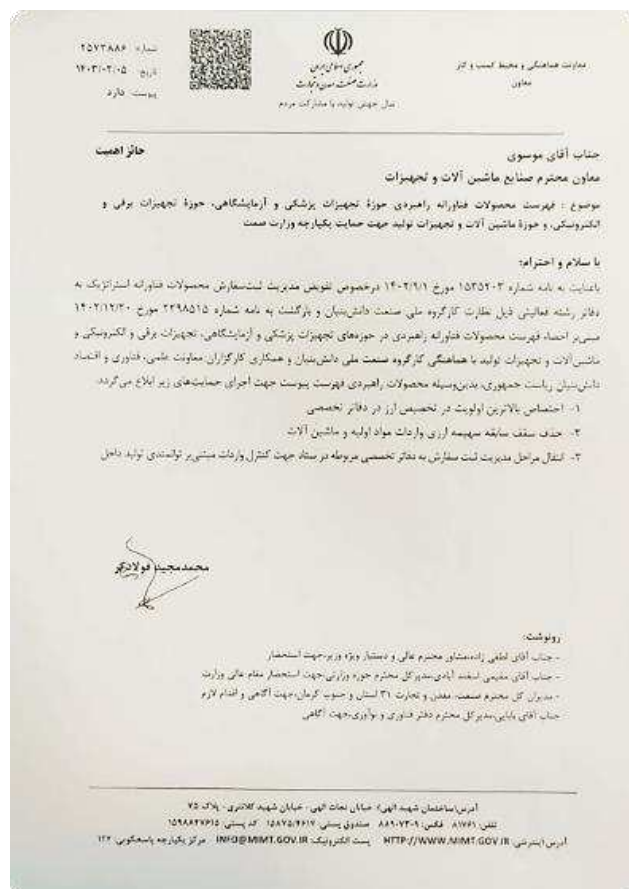 شماره ۲۵۷۳۸۸۶
تاریخ ۱۴۰۳/۰۲/۰۵
پیوست دارد
جمهوری اسلامی ایران
وزارت صنعت، معدن و تجارت
سال جهش تولید با مشارکت مردم
معاونت هماهنگی و محیط کسب و کار
معاون
حائز اهمیت
جناب آقای موسوی
معاون محترم صنایع ماشین آلات و تجهیزات
موضوع : فهرست محصولات فناورانه راهبردی حوزهٔ تجهیزات پزشکی و آزمایشگاهی، حوزهٔ تجهیزات برقی و
الکترونیکی، و حوزهٔ ماشین آلات و تجهیزات تولید جهت حمایت یکپارچه وزارت صمت
با سلام و احترام؛
باعنایت به نامه شماره ۱۵۳۵۲۰۳ مورخ ۱۴۰۲/۹/۱ درخصوص تفویض مدیریت ثبت‌سفارش محصولات فناورانه استراتژیک به
دفاتر رشته فعالیتی ذیل نظارت کارگروه ملی صنعت دانش‌بنیان و بازگشت به نامه شماره ۲۳۹۸۵۱۵ مورخ ۱۴۰۲/۱۲/۲۰
مبنی‌بر احصاء فهرست محصولات فناورانه راهبردی در حوزه‌های تجهیزات پزشکی و آزمایشگاهی، تجهیزات برقی و الکترونیکی و
ماشین‌آلات و تجهیزات تولید با هماهنگی کارگروه صنعت ملی دانش‌بنیان و همکاری کارگزاران معاونت علمی، فناوری و اقتصاد
دانش‌بنیان ریاست جمهوری، بدین‌وسیله محصولات راهبردی فهرست پیوست جهت اجرای حمایت‌های زیر ابلاغ می‌گردد.
۱- اختصاص بالاترین اولویت در تخصیص ارز در دفاتر تخصصی
۲- حذف سقف سابقه سهمیه ارزی واردات مواد اولیه و ماشین آلات
۳- انتقال مراحل مدیریت ثبت سفارش به دفاتر تخصصی مربوطه در ستاد جهت کنترل واردات مبتنی‌بر توانمندی تولید داخل
محمدمجید فولادگر
رونوشت:
- جناب آقای لطفی زاده،مشاور محترم عالی و دستیار ویژه وزیر،جهت استحضار
- جناب آقای مقیمی اسفند آبادی،مدیرکل محترم حوزه وزارتی،جهت استحضار مقام عالی وزارت
- مدیران کل محترم صنعت، معدن و تجارت ۳۱ استان و جنوب کرمان،جهت آگاهی و اقدام لازم
جناب آقای بابایی،مدیرکل محترم دفتر فناوری و نوآوری،جهت آگاهی
آدرس:(ساختمان شهید الهی) خیابان نجات الهی - خیابان شهید کلانتری - پلاک ۷۵
تلفن: ۸۱۷۶۱ فکس: ۸۸۹۰۷۳۰۹ صندوق پستی: ۱۵۸۷۵/۴۶۱۷ کد پستی: ۱۵۹۸۸۴۷۶۱۵
آدرس اینترنتی: HTTP://WWW.MIMT.GOV.IR پست الکترونیک: INFO@MIMT.GOV.IR مرکز یکپارچه پاسخگویی: ۱۲۴